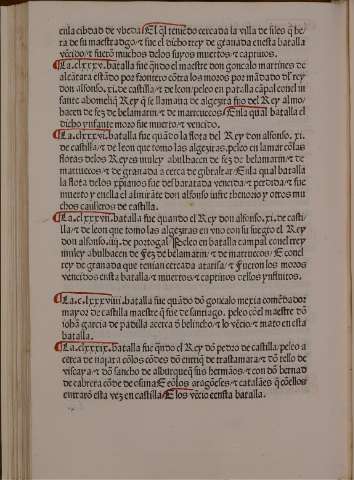 enla cibdad de vbeda/ El q̃l teniẽdo cercada la villa de siles q̃ be
ra de su maestradgo/ ⁊ fue el dicho rey de granada enesta batalla
vẽcido/ ⁊ fuerõ muchos delos suyos muertos/⁊ captiuos.
¶ La.clxxxv.batalla fue quãdo el maestre don gonçalo martines de
alcãtara estãdo por frontero cõtra los moros por mãdado dl rey
don alfonso.xi.de castilla/⁊ de leon/peleo en batalla cãpal conel in
fante abomeliq̃ Rey q̃ se llamaua de algezira fijo del Rey almo/
hacen de fez de belamarin/⁊ de marruecos/Enla qual batalla el
dicho ynfante moro fue muerto/⁊ vencido.
¶ La.clxxxvi.batalla fue quãdo la flota del Rey don alfonso. xi.
de castilla/⁊ de leon que tomo las algeziras.peleo en la mar cõlas
flotas delos Reyes muley abulhacen de fez de belamarin/⁊ de
marruecos/⁊ de granada a cerca de gibraltar/Enla qual batalla
la flota delos xp̃ianos fue desbaratada vencida/⁊ perdida/⁊ fue
muerto y enella el almirãte don alfonso iufre thenorio y otros mu
chos caualleros de castilla.
¶ La.clxxxvii.batalla fue quando el Rey don alfonso.xi.de casti/
lla/⁊ de leon que tomo las algeziras en vno con su suegro el Rey
don alfonso.iiij.de portogal Peleo en batalla campal conel rrey
muley abulhacen de Fez de belamarin/⁊ de marruecos/ E conel
rey de granada que tenian cercada atarifa/⁊ Fueron los moros
vencidos enesta batalla/⁊ muertos/⁊ captiuos dellos ynfinitos.
¶ La.c.lxxxviii.batalla fue quãdo dõ gonçalo mexia comẽdador
mayor de castilla maestre q̃ fue de santiago. peleo cõel maestre dõ
iohã garcia de padilla acerca õ belincho/⁊ lo vẽcio/⁊ mato en esta
batalla.
¶ La.clxxxix.batalla fue q̃ndo el Rey dõ pedro de castilla/peleo a
cerca de najara cõlos cõdes dõ enrriq̃ de trastamara/⁊ dõ tello de
viscaya/⁊ dõ sancho de alburqueq̃ sus hermãos/⁊ con dõ bernad
de cabrera cõde de osuna/E cõlos aragoneses/⁊ catalães q̃ cõellos
entrarõ esta vez en castilla/E los vẽcio enesta batalla.